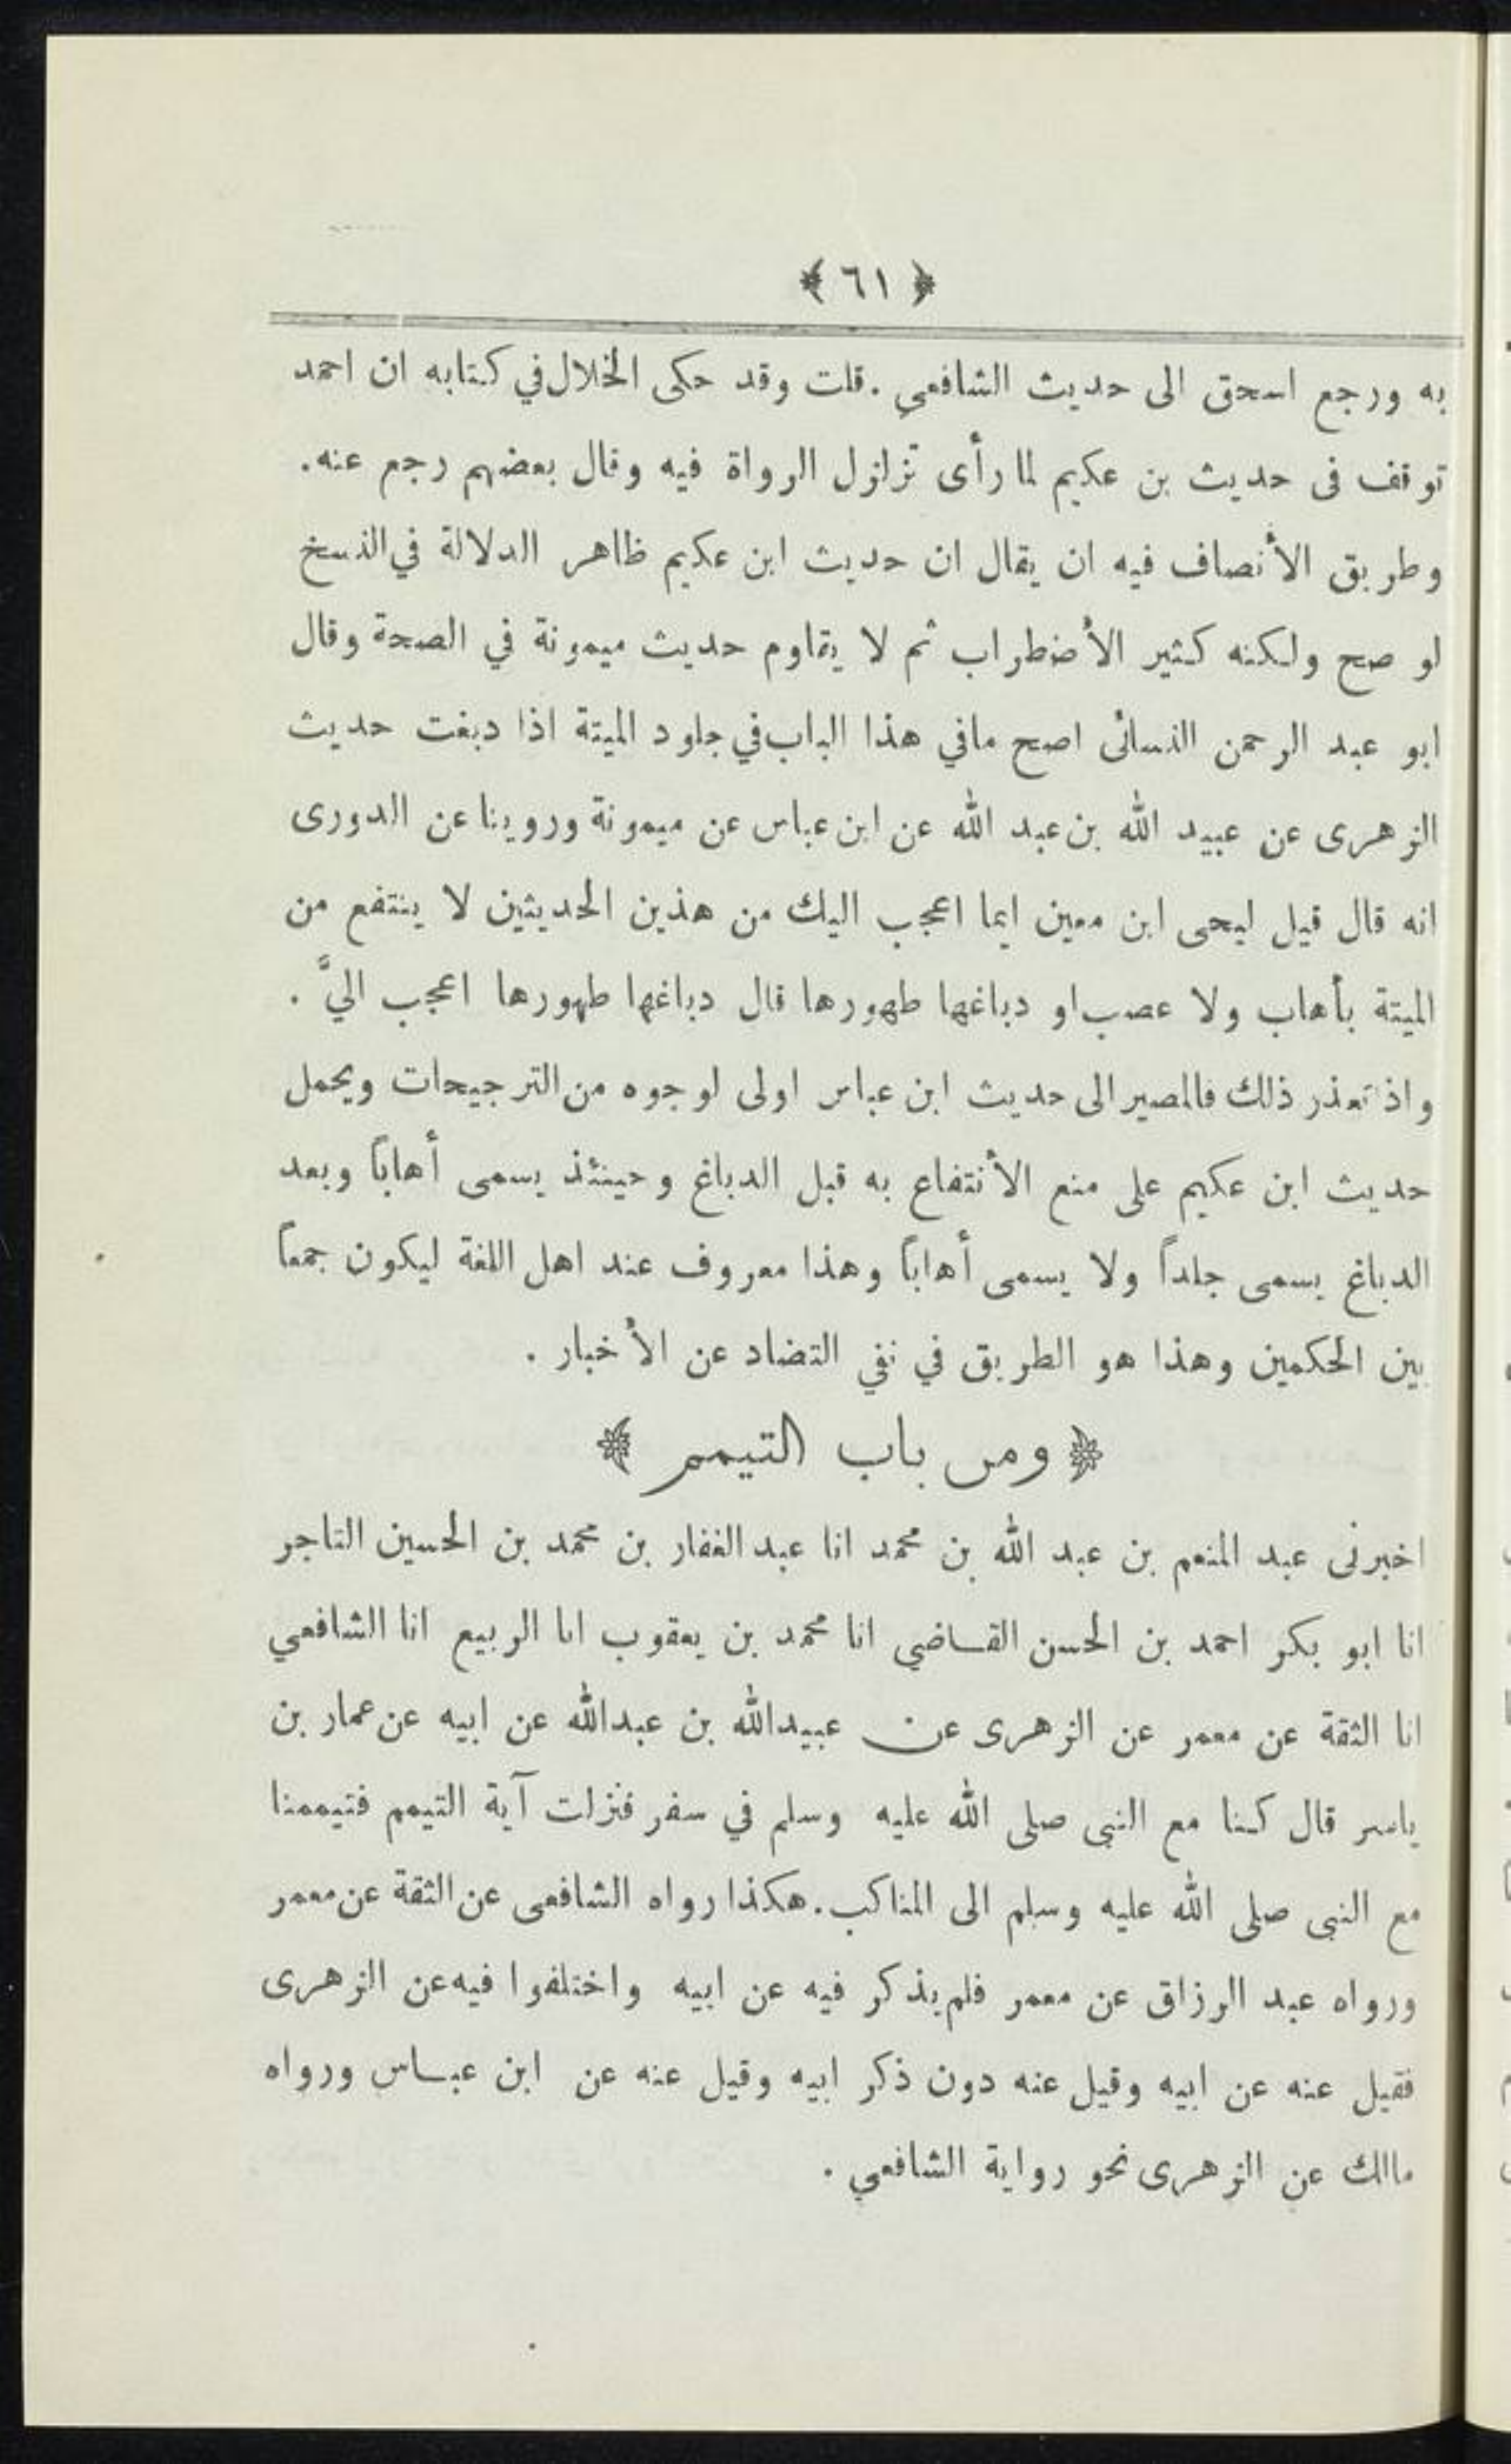 ﴿ ٦١ ﴾
به ورجع اسحق الى حديث الشافعي . قلت وقد حكى الخلال في كتابه ان احمد
توقف فى حديث بن عكيم لما رأى تزلزل الرواة فيه وقال بعضهم رجع عنه .
وطريق الأنصاف فيه ان يقال ان حديث ابن عكيم ظاهر الدلالة في النسخ
لو صح ولكنه كثير الأضطراب ثم لا يقاوم حديث ميمونة في الصحة وقال
ابو عبد الرحمن النسائى اصح مافي هذا الباب في جلود الميتة اذا دبغت حديث
الزهرى عن عبيد الله بن عبد الله عن ابن عباس عن ميمونة وروينا عن الدورى
انه قال قيل ليحى ابن معين ايما اعجب اليك من هذين الحديثين لا ينتفع من
الميتة بأهاب ولا عصب او دباغها طهورها قال دباغها طهورها اعجب اليَّ .
واذ تعذر ذلك فالمصير الى حديث ابن عباس اولى لوجوه من الترجيحات ويحمل
حديث ابن عكيم على منع الأنتفاع به قبل الدباغ وحينئذ يسمى أهاباً وبعد
الدباغ يسمى جلداً ولا يسمى أهاباً وهذا معروف عند اهل اللغة ليكون جمعاً
بين الحكمين وهذا هو الطريق في نفي التضاد عن الأخبار .
﴿ ومن باب التيمم ﴾
اخبرنى عبد المنعم بن عبد الله بن محمد انا عبد الغفار بن محمد بن الحسين التاجر
انا ابو بكر احمد بن الحسن القاضي انا محمد بن يعقوب انا الربيع انا الشافعي
انا الثقة عن معمر عن الزهرى عن عبيدالله بن عبدالله عن ابيه عن عمار بن
ياسر قال كنا مع النبى صلى الله عليه وسلم في سفر فنزلت آية التيمم فتيممنا
مع النبى صلى الله عليه وسلم الى المناكب . هكذا رواه الشافعى عن الثقة عن معمر
ورواه عبد الرزاق عن معمر فلم يذكر فيه عن ابيه واختلفوا فيه عن الزهرى
فقيل عنه عن ابيه وقيل عنه دون ذكر ابيه وقيل عنه عن ابن عباس ورواه
مالك عن الزهرى نحو رواية الشافعي .